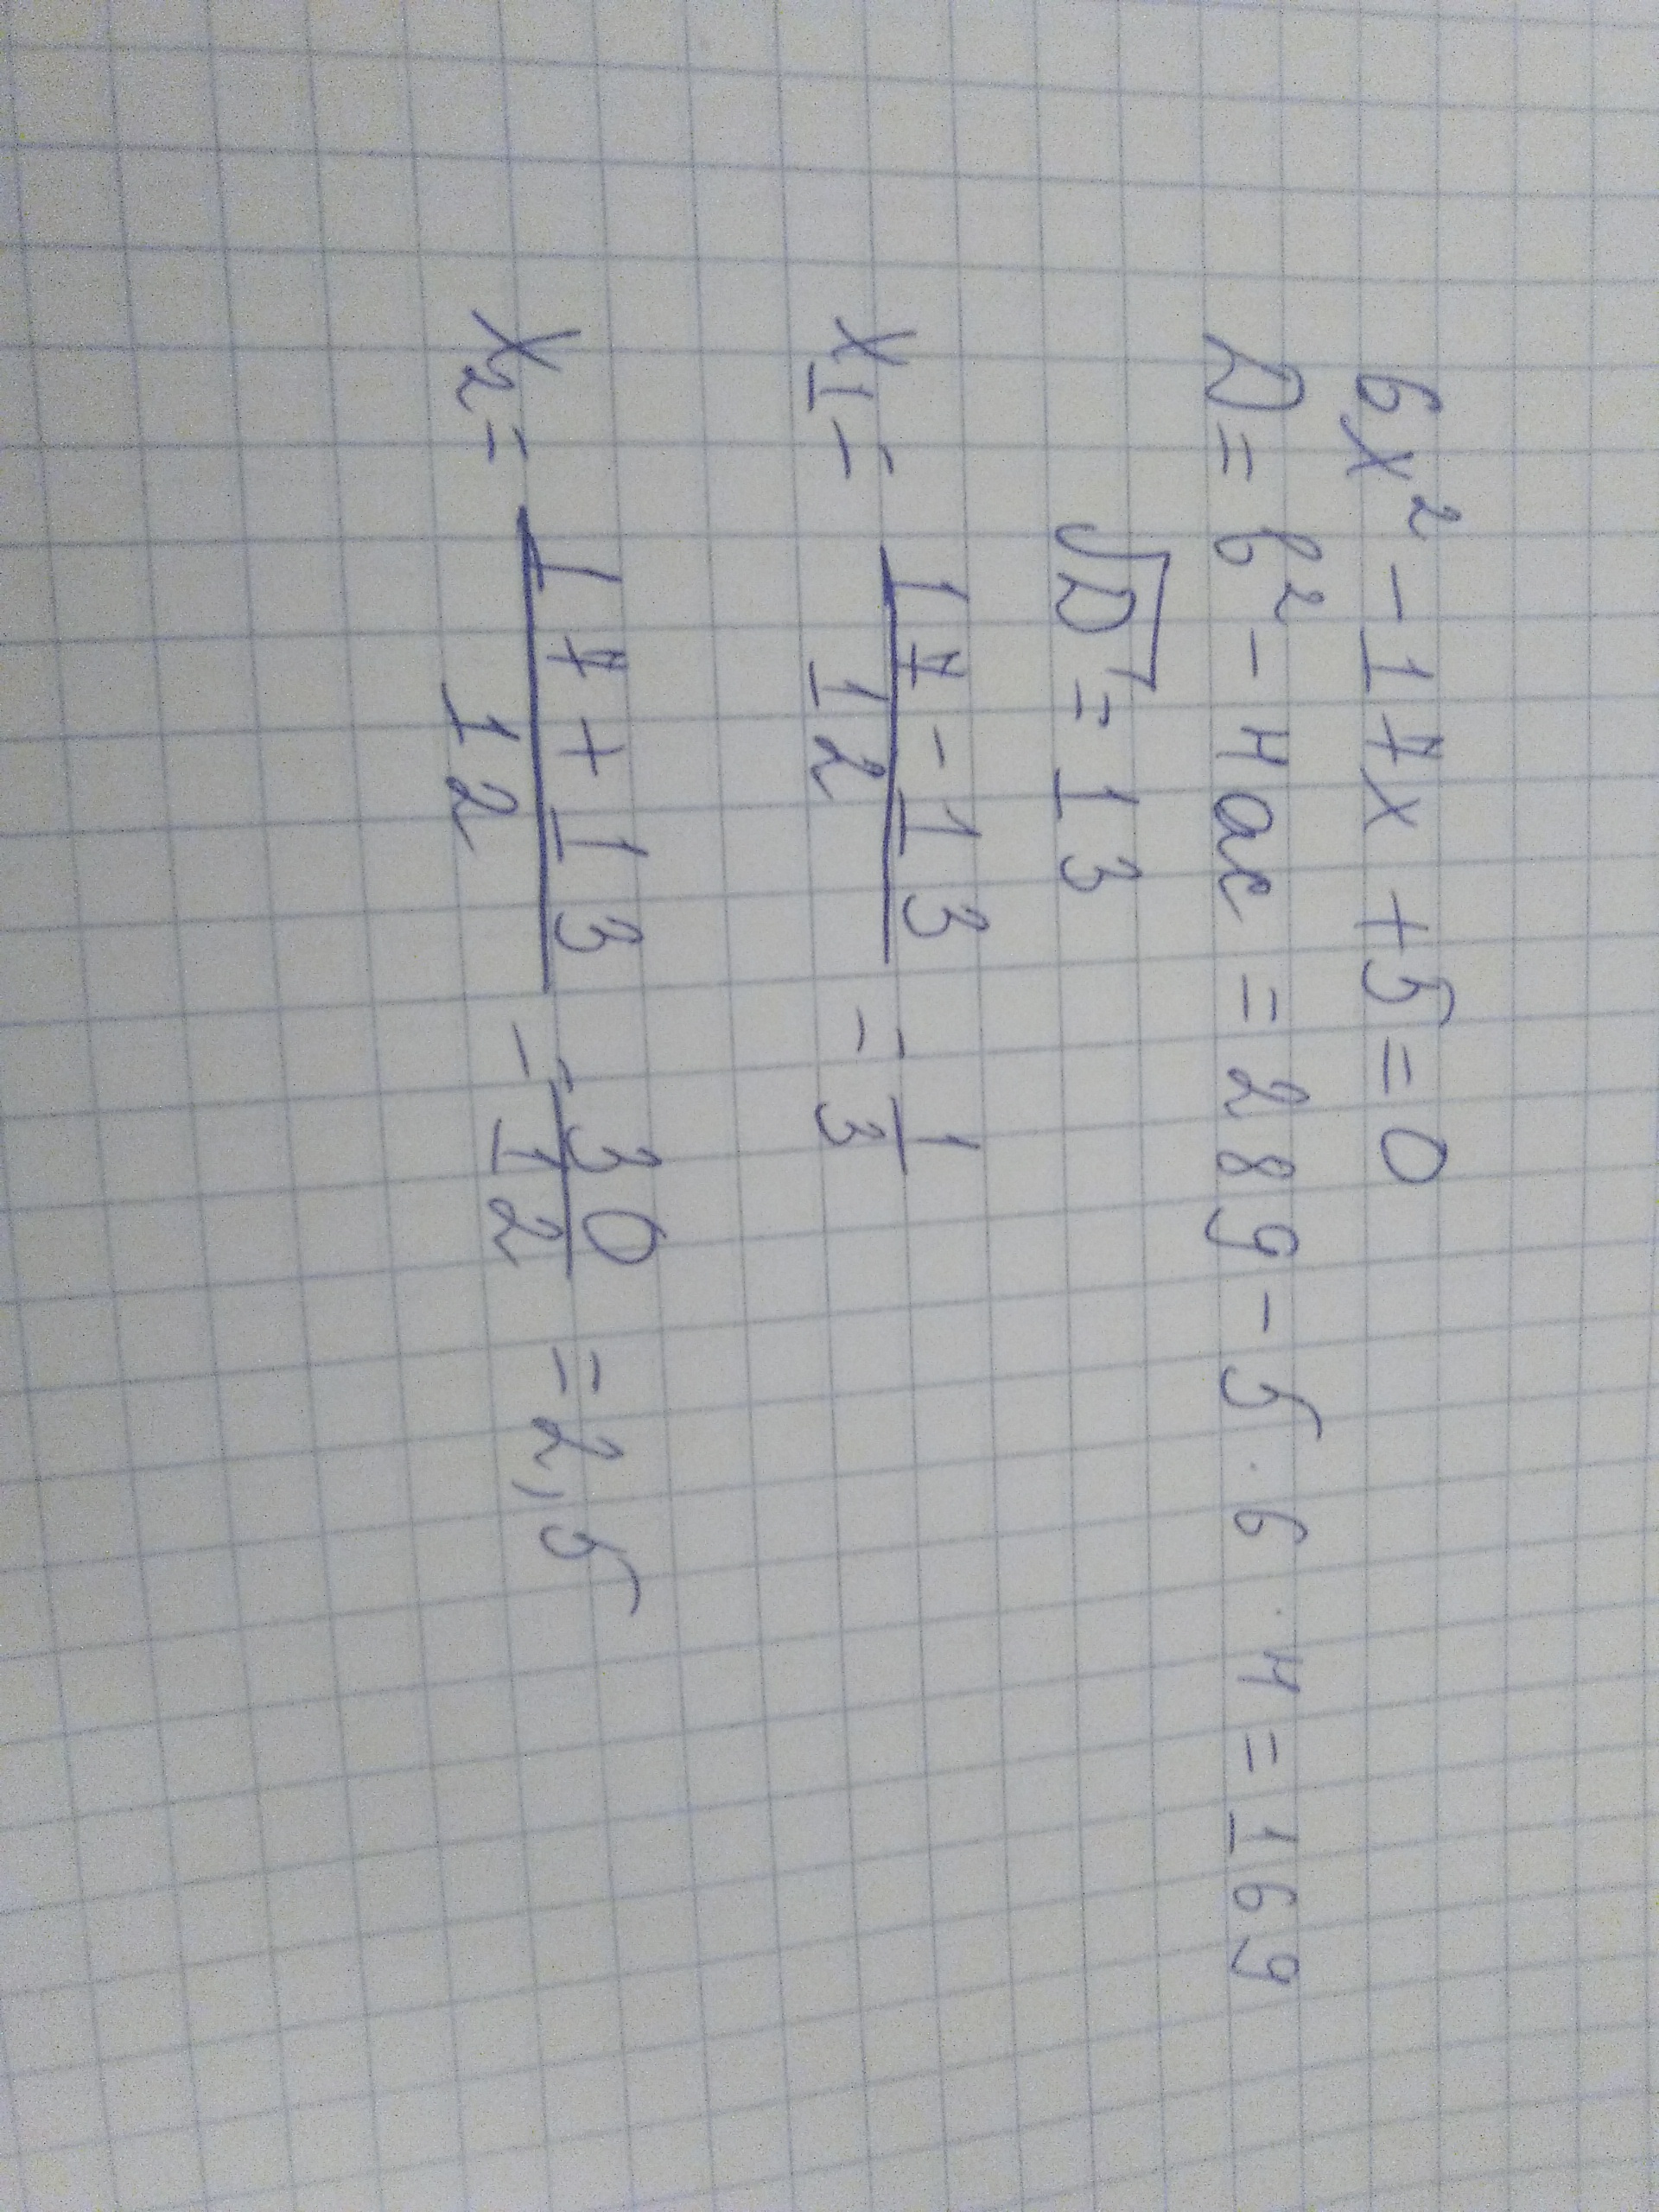 6x² - 17x + 5 = 0
D = b² - 4ac = 289 - 5 · 6 · 4 = 169
√D = 13
x₁ = (17 - 13)/12 = 1/3
x₂ = (17 + 13)/12 = 30/12 = 2,5